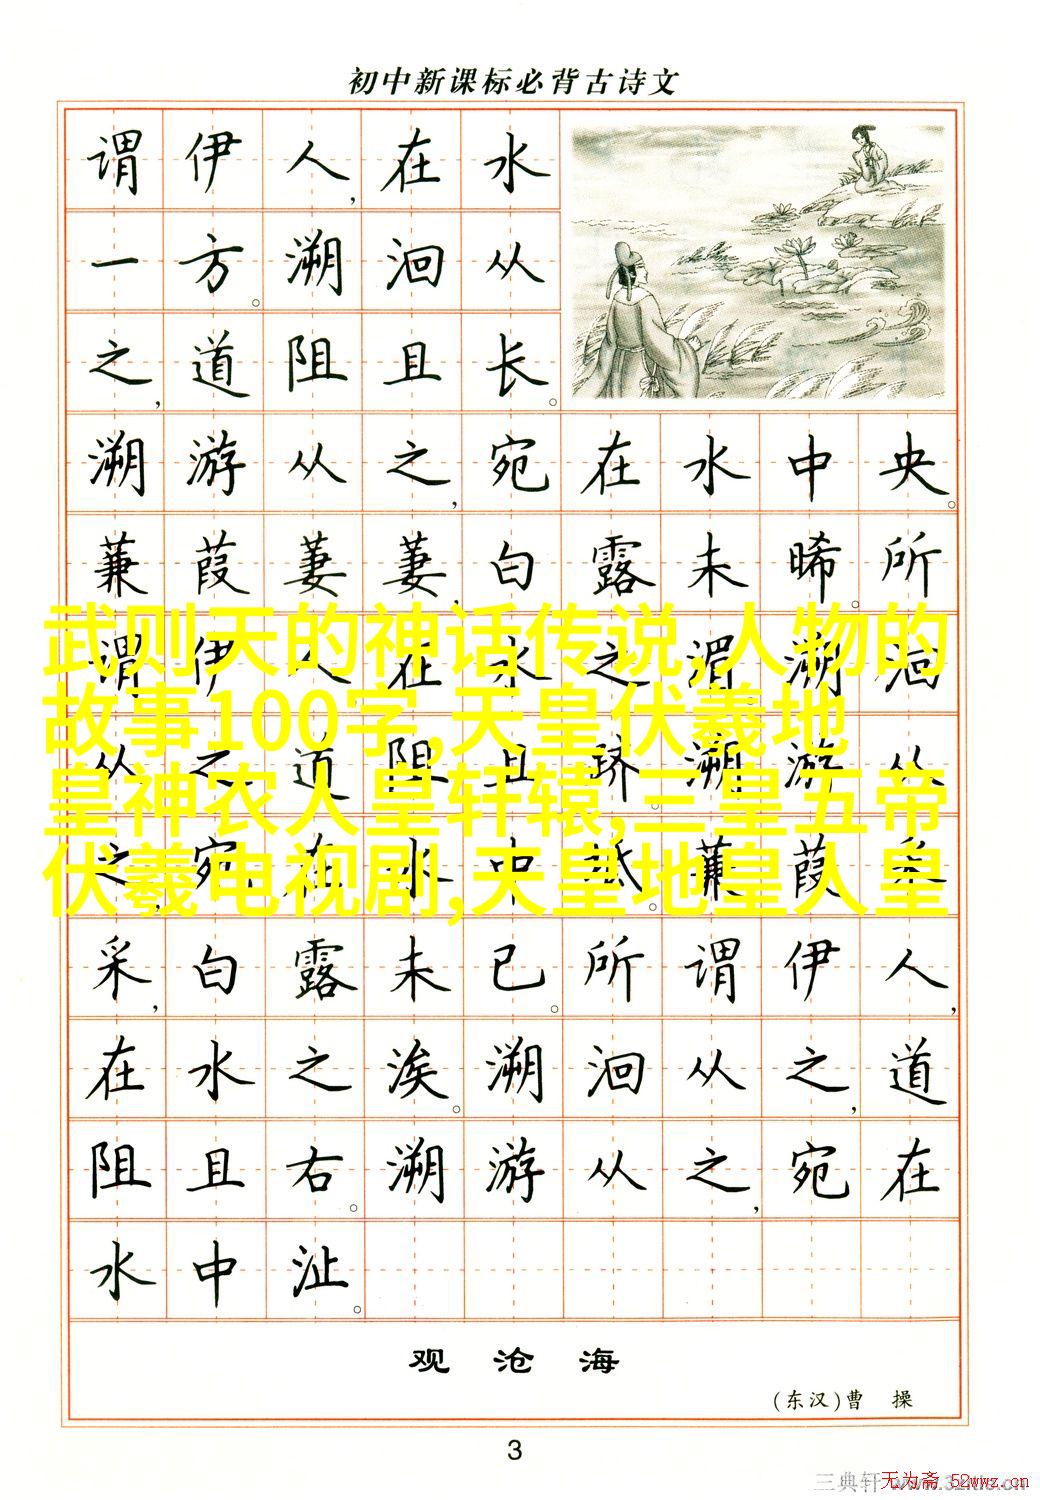 初中新课标必背古诗文
谓伊人，在水
一方。溯洄从
之，道阻且长。
溯游从之，宛在水中央。
蒹葭萋萋，白露未晞。所
谓伊人，在水之湄。溯洄
从之，道阻且跻。溯游从
之，宛在水中坻。蒹葭采
采，白露未已。所谓伊人，
在水之涘。溯洄从之，道
阻且右。溯游从之，宛在
水中沚。
武则天的神话传说,人物的
故事100字,天皇伏羲地
皇神农人皇轩辕,三皇五帝
伏羲电视剧,天皇地皇人皇
观沧海
(东汉)曹 操
3
三典轩
无为斋 52wwz.cn